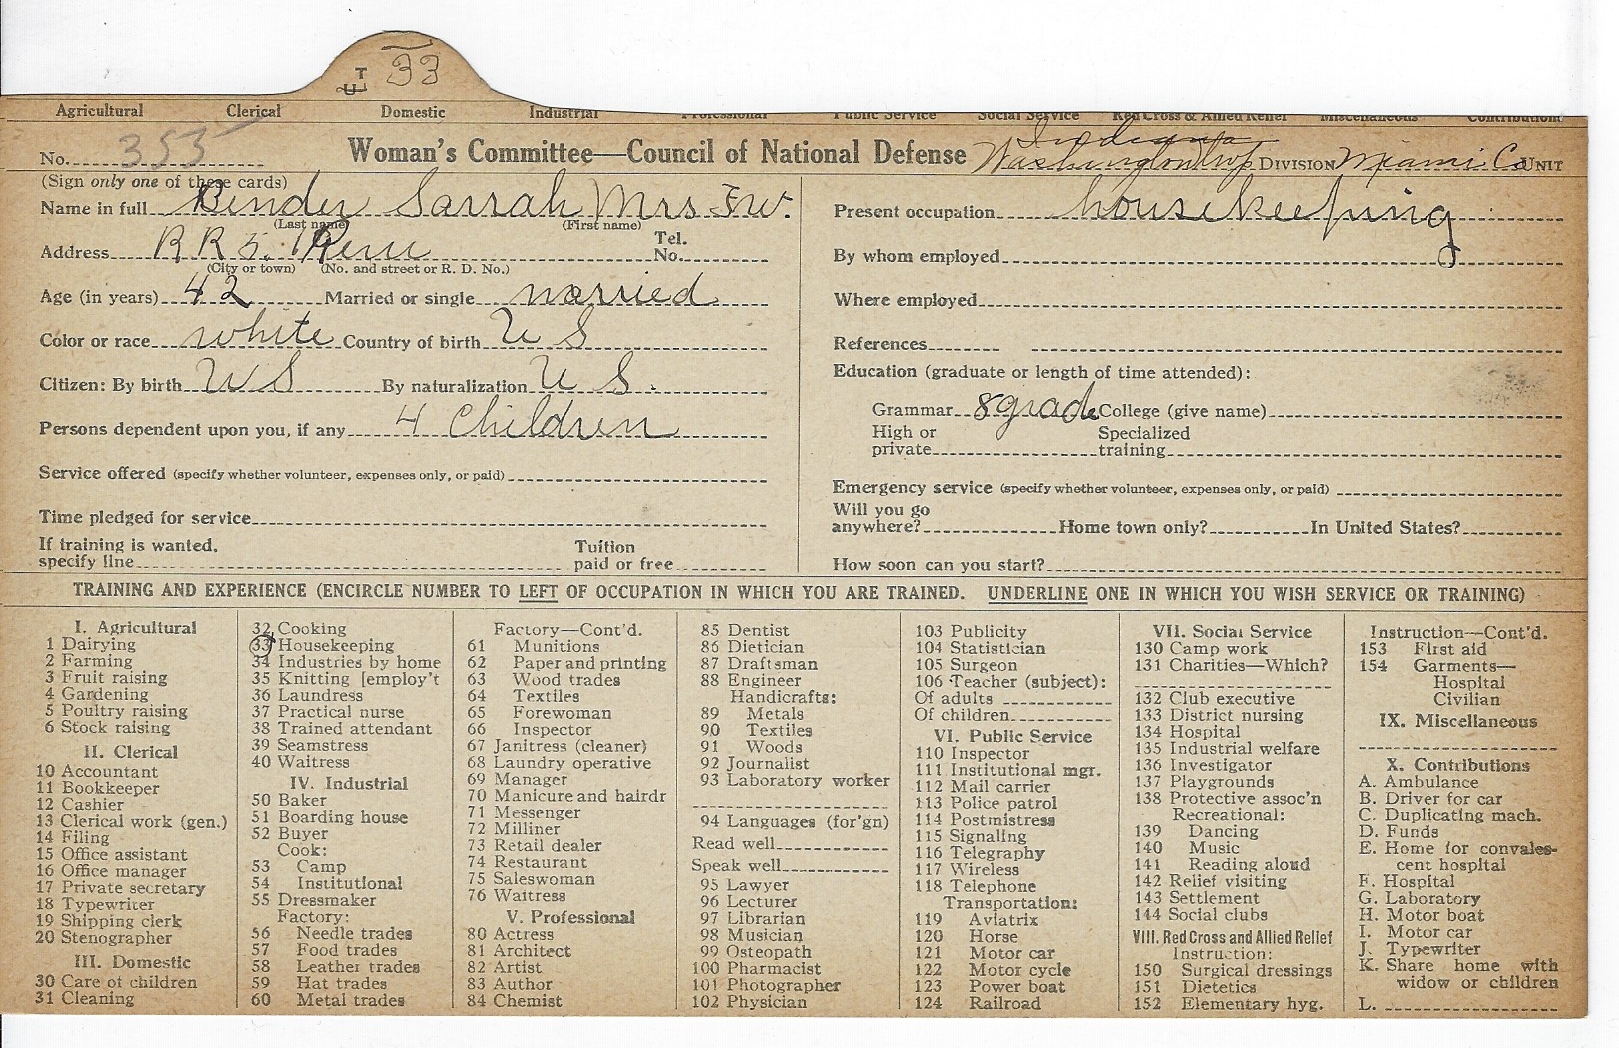 ET 33
Agricultural Clerical Domestic Industrial Professional Public Service Social Service Red Cross & Allied Relief Miscellaneous Contributions
No. 353
Woman's Committee—Council of National Defense
Indiana
Washington Twp DIVISION Miami Co UNIT
(Sign only one of these cards)
Name in full Binder Sarrah Mrs F.W.
(Last name) (First name)
Address R R 5. Peru Tel. No.
(City or town) (No. and street or R. D. No.)
Age (in years) 42 Married or single married
Color or race white Country of birth U S
Citizen: By birth U S By naturalization U S.
Persons dependent upon you, if any 4 Children
Service offered (specify whether volunteer, expenses only, or paid)
Time pledged for service
If training is wanted, specify line Tuition paid or free
Present occupation housekeeping
By whom employed
Where employed
References
Education (graduate or length of time attended):
Grammar 8 grade College (give name)
High or private Specialized training
Emergency service (specify whether volunteer, expenses only, or paid)
Will you go anywhere? Home town only? In United States?
How soon can you start?
TRAINING AND EXPERIENCE (ENCIRCLE NUMBER TO LEFT OF OCCUPATION IN WHICH YOU ARE TRAINED. UNDERLINE ONE IN WHICH YOU WISH SERVICE OR TRAINING)
I. Agricultural
1 Dairying
2 Farming
3 Fruit raising
4 Gardening
5 Poultry raising
6 Stock raising
II. Clerical
10 Accountant
11 Bookkeeper
12 Cashier
13 Clerical work (gen.)
14 Filing
15 Office assistant
16 Office manager
17 Private secretary
18 Typewriter
19 Shipping clerk
20 Stenographer
III. Domestic
30 Care of children
31 Cleaning
32 Cooking
33 Housekeeping
34 Industries by home
35 Knitting [employ't
36 Laundress
37 Practical nurse
38 Trained attendant
39 Seamstress
40 Waitress
IV. Industrial
50 Baker
51 Boarding house
52 Buyer
Cook:
53 Camp
54 Institutional
55 Dressmaker
Factory:
56 Needle trades
57 Food trades
58 Leather trades
59 Hat trades
60 Metal trades
Factory—Cont'd.
61 Munitions
62 Paper and printing
63 Wood trades
64 Textiles
65 Forewoman
66 Inspector
67 Janitress (cleaner)
68 Laundry operative
69 Manager
70 Manicure and hairdr
71 Messenger
72 Milliner
73 Retail dealer
74 Restaurant
75 Saleswoman
76 Waitress
V. Professional
80 Actress
81 Architect
82 Artist
83 Author
84 Chemist
85 Dentist
86 Dietician
87 Draftsman
88 Engineer
Handicrafts:
89 Metals
90 Textiles
91 Woods
92 Journalist
93 Laboratory worker
94 Languages (for'gn)
Read well
Speak well
95 Lawyer
96 Lecturer
97 Librarian
98 Musician
99 Osteopath
100 Pharmacist
101 Photographer
102 Physician
103 Publicity
104 Statistician
105 Surgeon
106 Teacher (subject):
Of adults
Of children
VI. Public Service
110 Inspector
111 Institutional mgr.
112 Mail carrier
113 Police patrol
114 Postmistress
115 Signaling
116 Telegraphy
117 Wireless
118 Telephone
Transportation:
119 Aviatrix
120 Horse
121 Motor car
122 Motor cycle
123 Power boat
124 Railroad
VII. Social Service
130 Camp work
131 Charities—Which?
132 Club executive
133 District nursing
134 Hospital
135 Industrial welfare
136 Investigator
137 Playgrounds
138 Protective assoc'n
Recreational:
139 Dancing
140 Music
141 Reading aloud
142 Relief visiting
143 Settlement
144 Social clubs
VIII. Red Cross and Allied Relief
Instruction:
150 Surgical dressings
151 Dietetics
152 Elementary hyg.
Instruction—Cont'd.
153 First aid
154 Garments—
Hospital
Civilian
IX. Miscellaneous
X. Contributions
A. Ambulance
B. Driver for car
C. Duplicating mach.
D. Funds
E. Home for convales-
cent hospital
F. Hospital
G. Laboratory
H. Motor boat
I. Motor car
J. Typewriter
K. Share home with
widow or children
L.